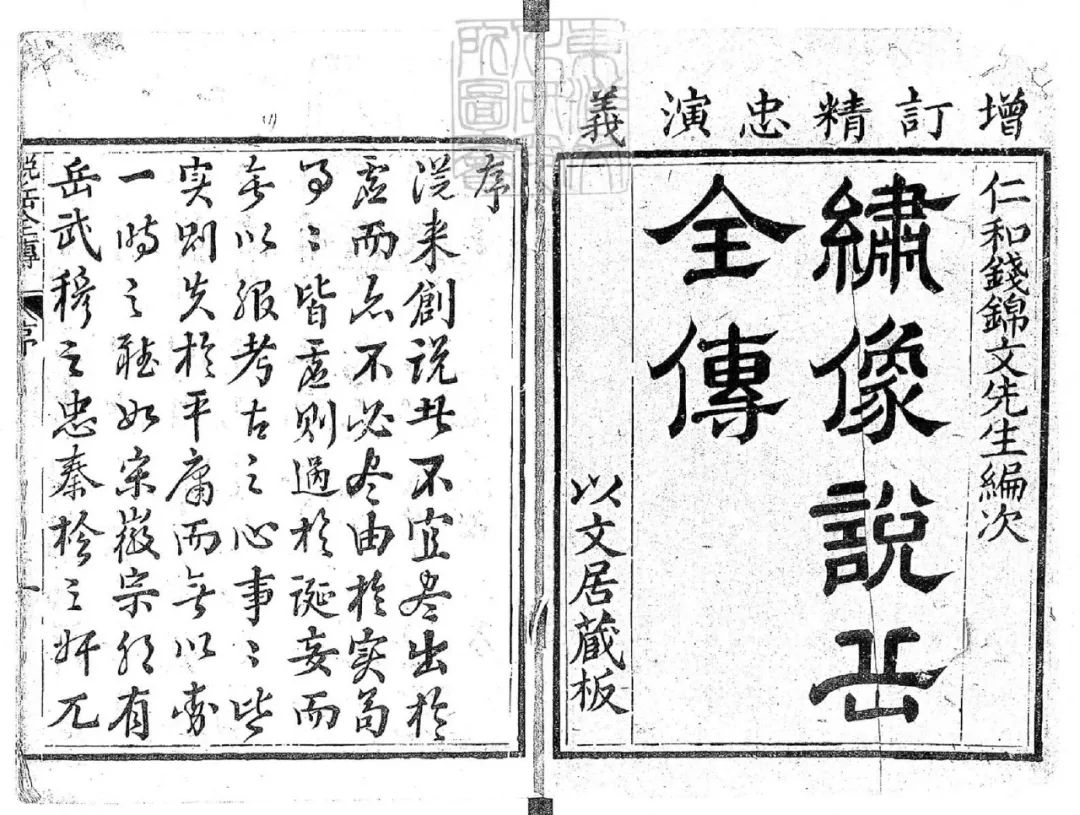 增訂精忠演義
仁和錢錦文先生編次
繡像說岳
全傳
以文居藏板
序
從来創說者不宜尽出於
虛而亦不必尽由於实苟
事〻皆虛則過於誕妄而
無以服考古之心事〻皆
实則失於平庸而無以動
一時之聽如宋徽宗朝有
岳武穆之忠秦檜之奸兀
說岳全傳
序
一